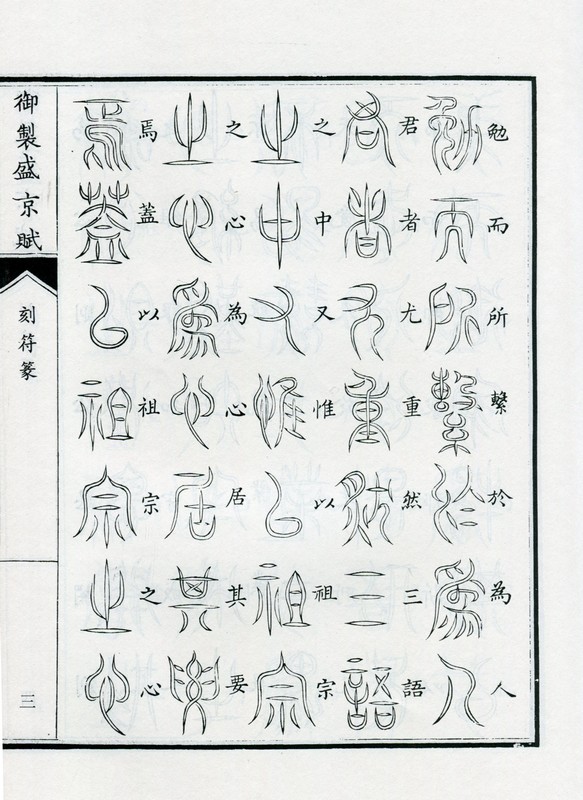 勉而所繫於為人
君者尤重然三語
之中又惟以祖宗
之心為心居其要
焉蓋以祖宗之心
御製盛京賦
刻符篆
三